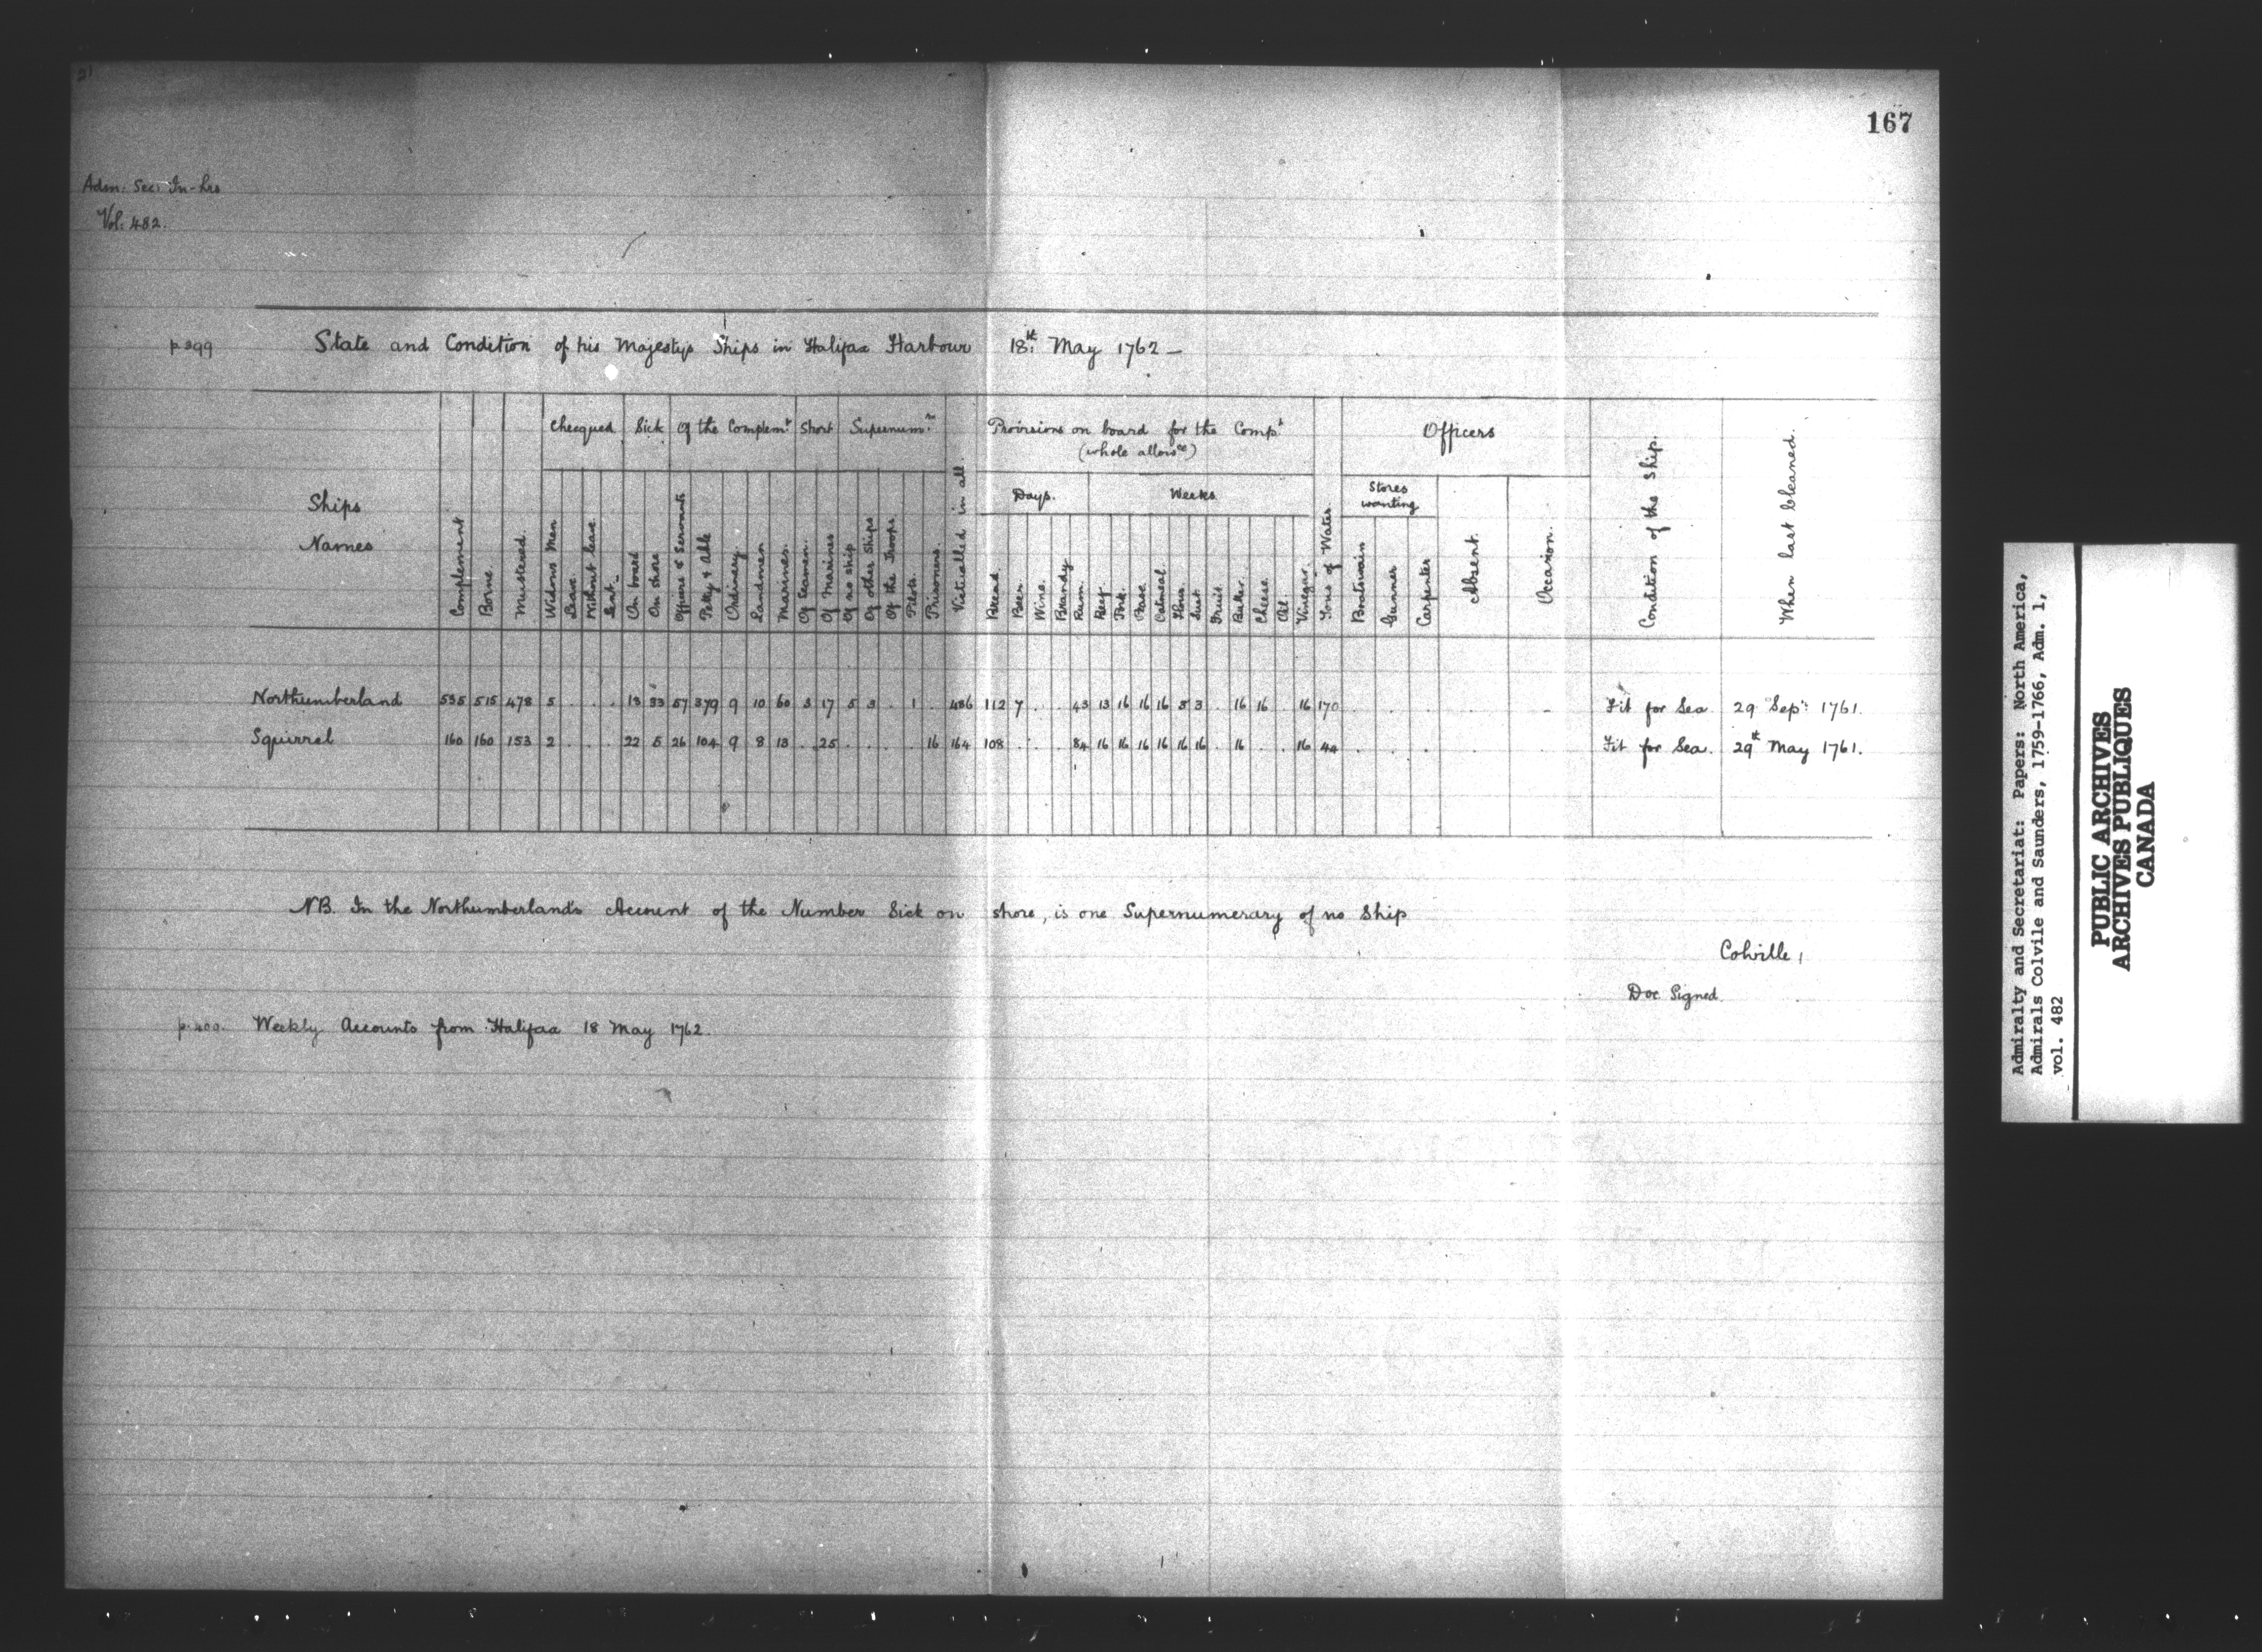 167
Adm: Sec: In-lrs
Vol: 482.
p 399 State and Condition of his Majestys Ships in Halifax Harbour 18th May 1762 —
Ships Names
Complement
Borne.
Mustered.
Checqued
Widows Men
Leave
Without leave.
Lent.
Sick
On board
On shore
Of the Complemt
Officers & Servants
Petty & Able
Ordinary.
Landmen
Marines.
Short
Of Seamen.
Of Marines
Supernumrs
Of no ship
Of other Ships
Of the Troops
Pilots.
Prisoners.
Victualled in all.
Provisions on board for the Compt
(whole allowce)
Days.
Bread.
Beer.
Wine.
Brandy
Rum.
Weeks
Beef.
Pork.
Pease
Oatmeal
Flour.
Suet
Fruit.
Butter.
Cheese.
Oil.
Vinegar.
Tons of Water.
Officers
Stores wanting
Boatswain
Gunner
Carpenter
Absent.
Occasion.
Condition of the Ship.
When last Cleaned.
Northumberland 535 515 478 5 . . . 13 33 57 379 9 10 60 3 17 5 3 . 1 . 486 112 7 . . 43 13 16 16 16 8 3 . 16 16 . 16 170 . . . . - Fit for Sea 29 Sepr: 1761.
Squirrel 160 160 153 2 . . . 22 5 26 104 9 8 13 . 25 . . . . 16 164 108 . . . 84 16 16 16 16 16 16 . 16 . . 16 44 . . . . . Fit for Sea. 29th May 1761.
NB. In the Northumberlands Account of the Number Sick on shore, is one Supernumerary of no Ship
Colville,
Doc Signed.
p. 400. Weekly Accounts from Halifax 18 May 1762.
Admiralty and Secretariat: Papers: North America,
Admirals Colvile and Saunders, 1759-1766, Adm. 1,
vol. 482
PUBLIC ARCHIVES
ARCHIVES PUBLIQUES
CANADA